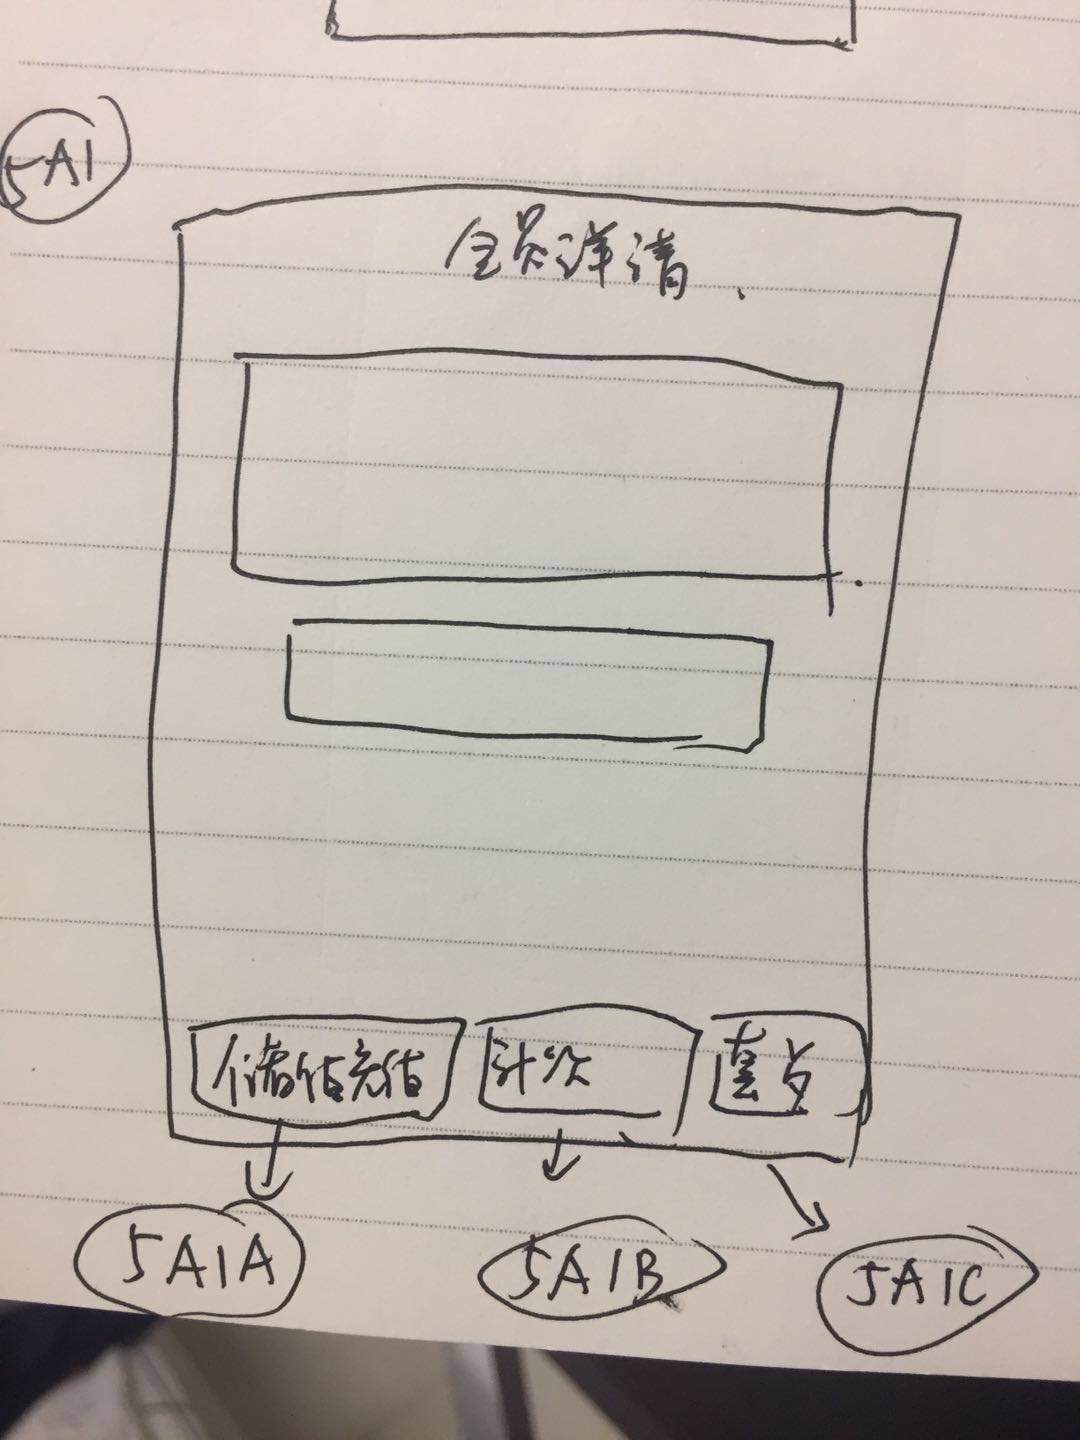 5A1
会员详情
储值充值 计次 套歺
5A1A 5A1B 5A1C